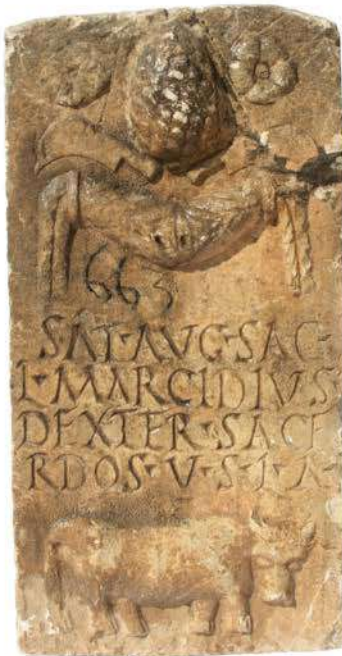 663
SAT·AVG·SAC·
L·MARCIDIVS
DEXTER·SACE
RDOS·V·S·L·A·